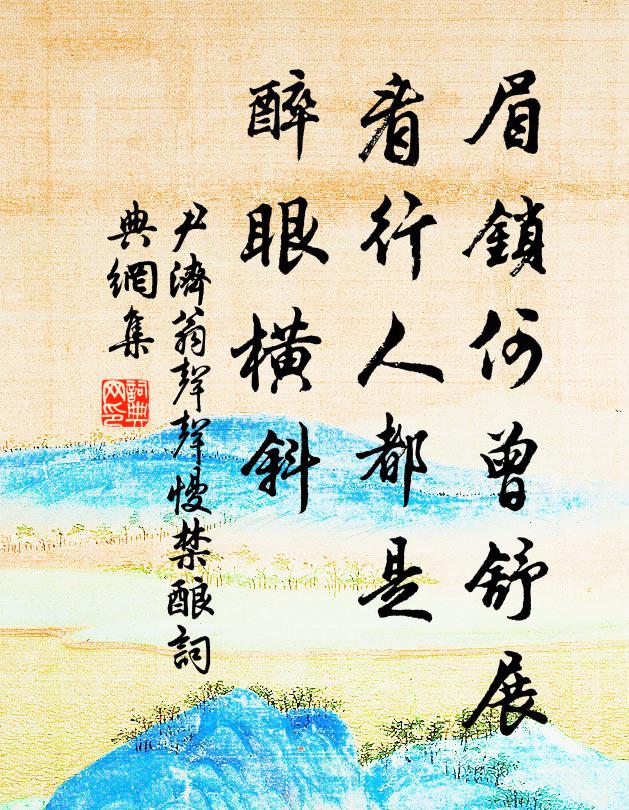 眉鎖何曾舒展
看行人都是
醉眼橫斜
尹濟翁聲聲慢禁釀詞
典網集
詞典
网印